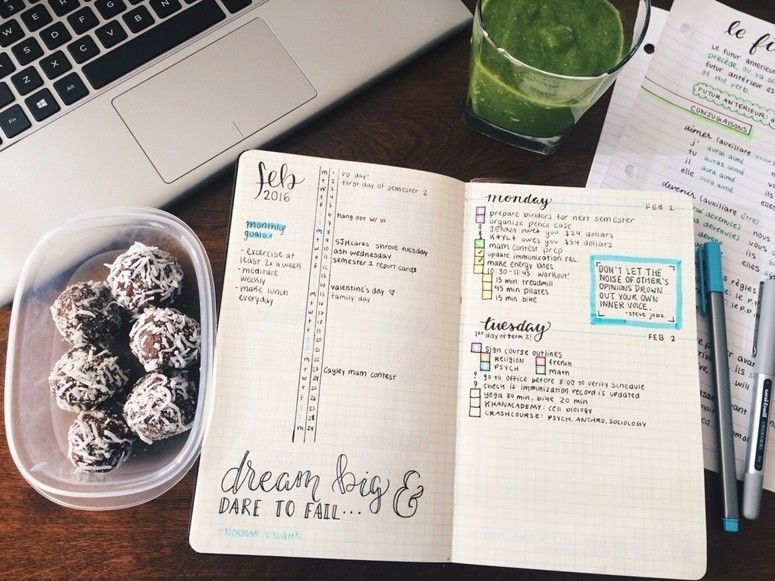 feb
2016
monthly
goals:
- exercise at
least 2x a week
- meditate
weekly
- make lunch
everyday
PD day!
first day of semester 2
hang out w/ vi
SJHcares shrove tuesday
ash wednesday
semester 1 report cards
valentine's day ♡
family day
Cayley math contest
dream big &
DARE TO FAIL...
-NORMAN VAUGHN
monday
FEB 1
prepare binders for next semester
organize pencil case
JENNA owes you $24 dollars
KAYLA owes you $54 dollars
math contest prep
update immunization rec.
make energy bites
10:30-11:45 workout!
15 min treadmill
45 min pilates
15 min bike
"DON'T LET THE
NOISE OF OTHER'S
OPINIONS DROWN
OUT YOUR OWN
INNER VOICE."
-steve jobs.
tuesday
FEB 2
1st day of term 2!
sign course outlines
RELIGION
french
PSYCH
math
go to office before 8:00 to verify schedule
check if immunization record is updated
yoga 30 min, bike 20 min
KHANACADEMY: cell biology
CRASHCOURSE: PSYCH, ANTHRO, SOCIOLOGY
le f
le futur antérieur
précède, ou va
futur antérieur es
of the verb.
FUTUR ANTERIEUR:
CONJUGAISONS
aimer (auxiliaire
j' aurai aimé
tu auras aimé
il aura aimé
elle aura aimé
devenir (auxiliaire être)